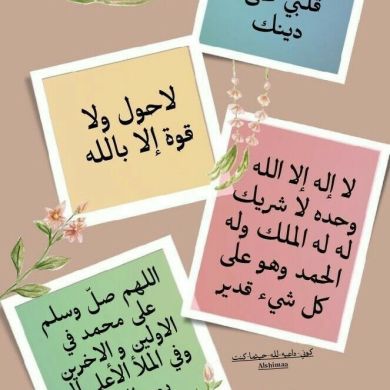 قلبي على
دينك
لاحول ولا
قوة إلا بالله
لا إله إلا الله
وحده لا شريك
له له الملك وله
الحمد وهو على
كل شيء قدير
اللهم صلّ وسلم
على محمد في
الاولين و الاخرين
وفي الملأ الأعلى
كوني داعيه لله حيثما كنت
Alshimaa